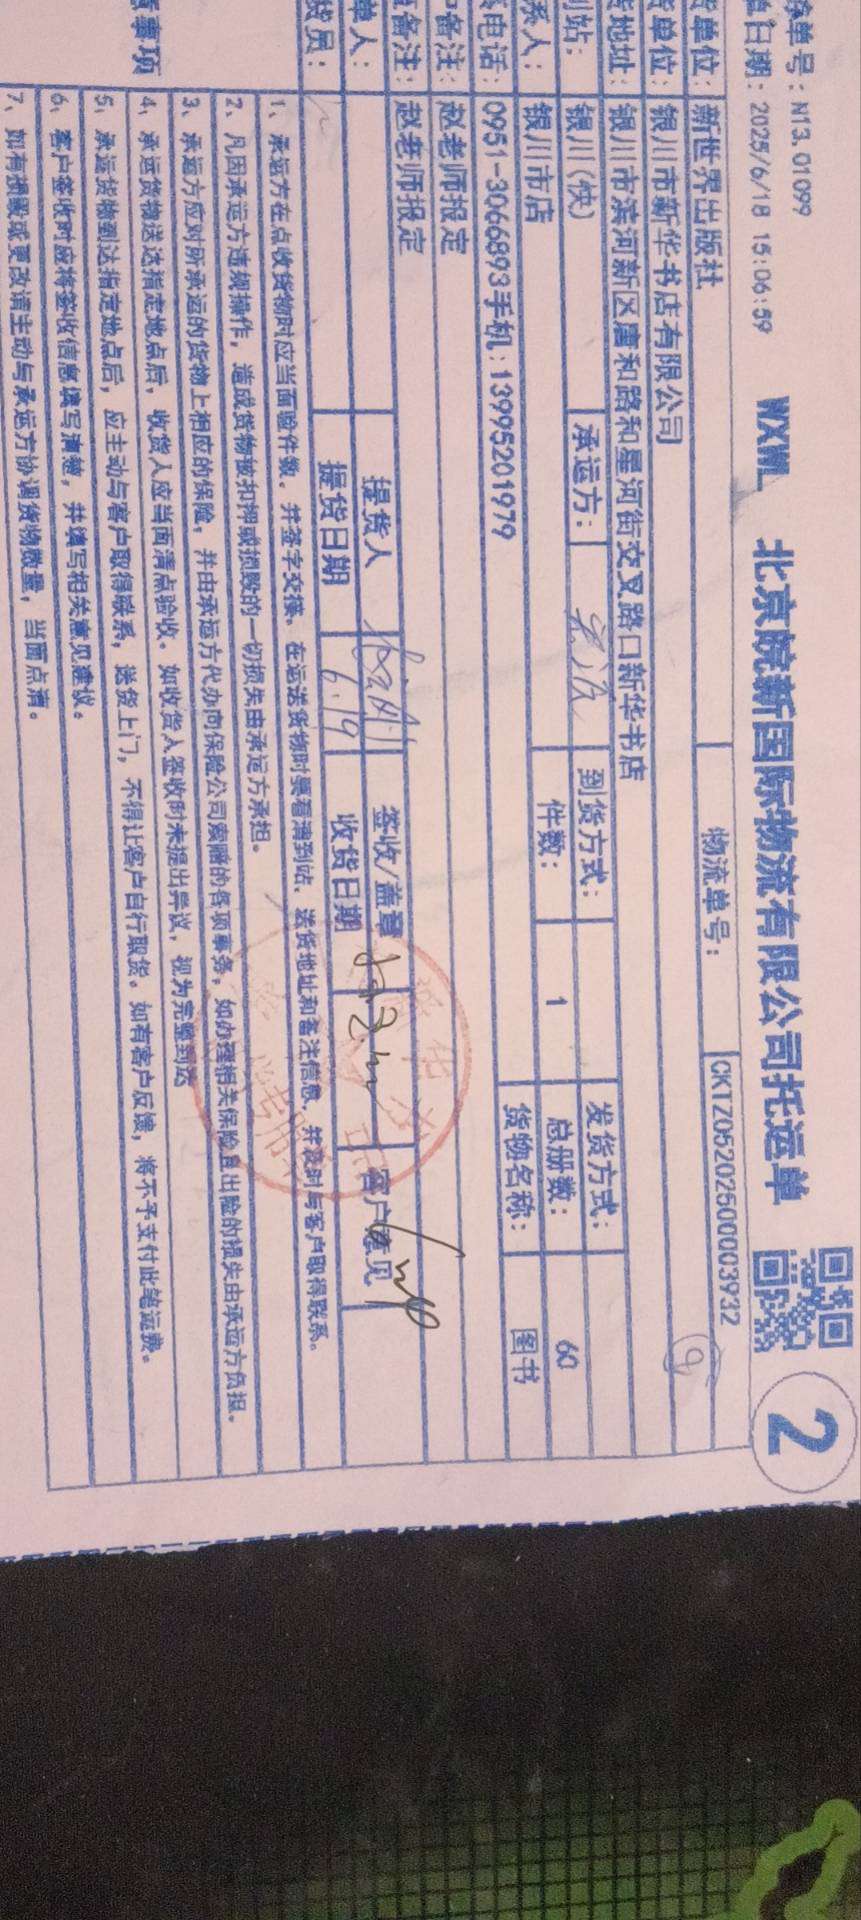 单号：N13.01099
日期：2025/6/18 15:06:59
WXWL 北京皖新国际物流有限公司托运单
2
单位：新世界出版社
物流单号：
CKTZ0520250003932
单位：银川市新华书店有限公司
地址：银川市滨河新区唐和路和星河街交叉路口新华书店
到站：银川(快)
承运方：
到货方式：
发货方式：
系人：银川市店
件数：
1
总册数：
60
电话：0951-3066893手机：13995201979
货物名称：
图书
备注：赵老师报定
备注：赵老师报定
单人：
提货人
签收/盖章
客户意见
货员：
提货日期
6.19
收货日期
事项
1、承运方在点收货物时应当面验件数。并签字交接。在运送货物时要看清到站、送货地址和备注信息，并及时与客户取得联系。
2、凡因承运方违规操作，造成货物被扣押或损毁的一切损失由承运方承担。
3、承运方应对所承运的货物上相应的保险，并由承运方代办向保险公司索赔的各项事务，如办理相关保险且出险的损失由承运方负担。
4、承运货物送达指定地点后，收货人应当面清点验收、如收货人签收时未提出异议，视为完整到达
5、承运货物到达指定地点后，应主动与客户取得联系，送货上门，不得让客户自行取货。如有客户反馈，将不予支付此笔运费。
6、客户签收时应将签收信息填写清楚，并填写相关意见建议。
7、如有损毁或更改请主动与承运方协调货物数量，当面点清。